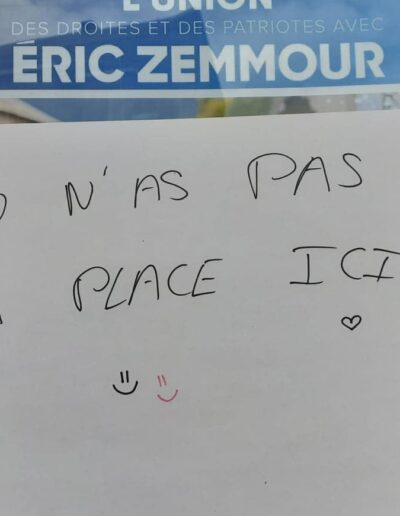 L'UNION
DES DROITES ET DES PATRIOTES AVEC
ÉRIC ZEMMOUR
N'AS PAS
PLACE ICI